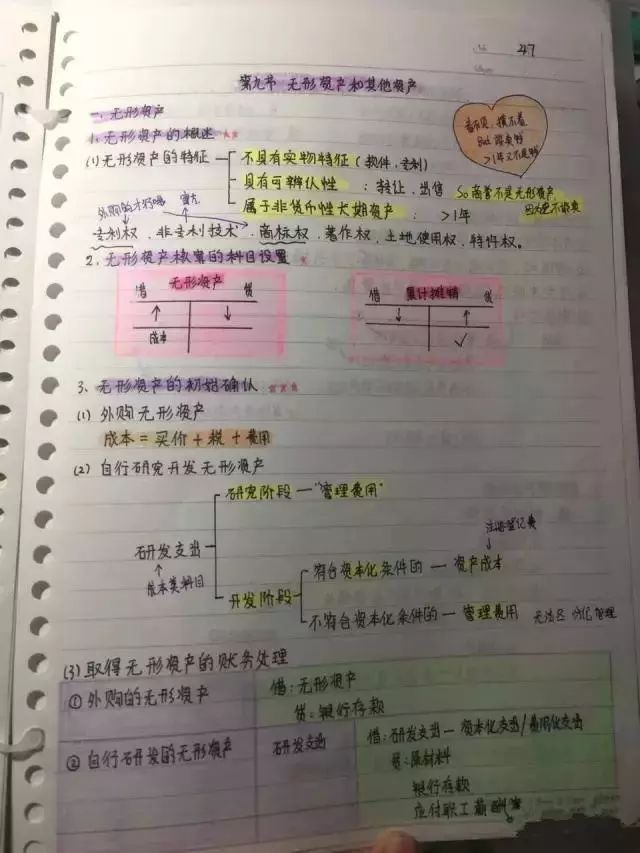 47
第九节 无形资产和其他资产
一、无形资产
1. 无形资产的概述 ★★
看不见,摸不着
But 很实物
>1年又不是钱
(1) 无形资产的特征
不具有实物特征(软件、专利)
具有可辨认性:转让、出售 So商誉不是无形资产
因为它不能卖
属于非货币性长期资产:>1年
外购的才行哦 官方
专利权、非专利技术、商标权、著作权、土地使用权、特许权。
2. 无形资产核算的科目设置 ★
借 无形资产 贷
↑ ↓
成本
借 累计摊销 贷
↓ ↑
✓
3、无形资产的初始确认 ★★★
(1) 外购无形资产
成本 = 买价 + 税 + 费用
(2) 自行研究开发无形资产
研究阶段 — "管理费用"
注册登记费
↓
研发支出
↑
成本类科目
开发阶段
符合资本化条件的 — 资产成本
不符合资本化条件的 — 管理费用 无法区分化管理
(3) 取得无形资产的账务处理
① 外购的无形资产
借:无形资产
贷:银行存款
② 自行研发的无形资产
研发支出
借:研发支出 — 资本化支出/费用化支出
贷:原材料
银行存款
应付职工薪酬等